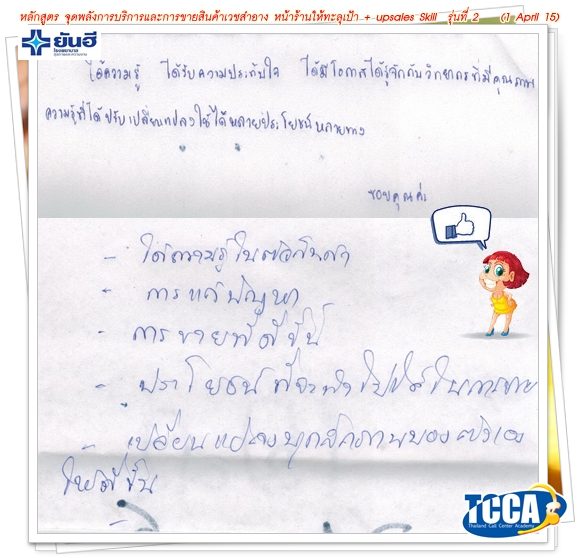 หลักสูตร จุดพลังการบริการและการขายสินค้าเวชสำอาง หน้าร้านให้ทะลุเป้า + upsales Skill รุ่นที่ 2 (1 April 15)
ยันฮี
โรงพยาบาล
ได้ความรู้ ได้รับความประทับใจ ได้มีโอกาสได้รู้จักกับวิทยากรที่มีคุณภาพ
ความรู้ที่ได้ปรับเปลี่ยนแปลงใช้ได้หลายประโยชน์หลายทาง
ขอบคุณค่ะ
- ได้ความรู้ในตัวสินค้า
- การแก้ปัญหา
- การขายที่ดีขึ้น
- ประโยชน์ที่จะนำไปใช้ในการขาย
- เปลี่ยนแปลงบุคลิกภาพของตัวเอง
ให้ดีขึ้น
TCCA
Thailand Call Center Academy